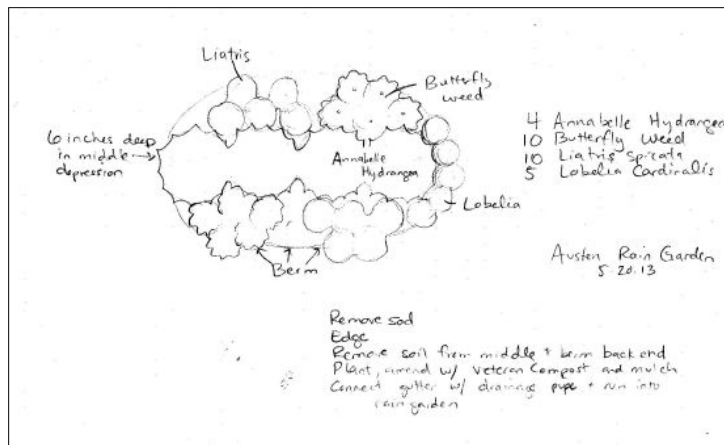 Liatris
Butterfly
weed
6 inches deep
in middle
depression
Annabelle
Hydrangea
Lobelia
Berm
4 Annabelle Hydrangea
10 Butterfly Weed
10 Liatris Spicata
5 Lobelia Cardinalis
Austen Rain Garden
5.20.13
Remove sod
Edge
Remove soil from middle + berm back end
Plant, amend w/ Veteran Compost and mulch
Connect gutter w/ drainage pipe + run into
rain garden